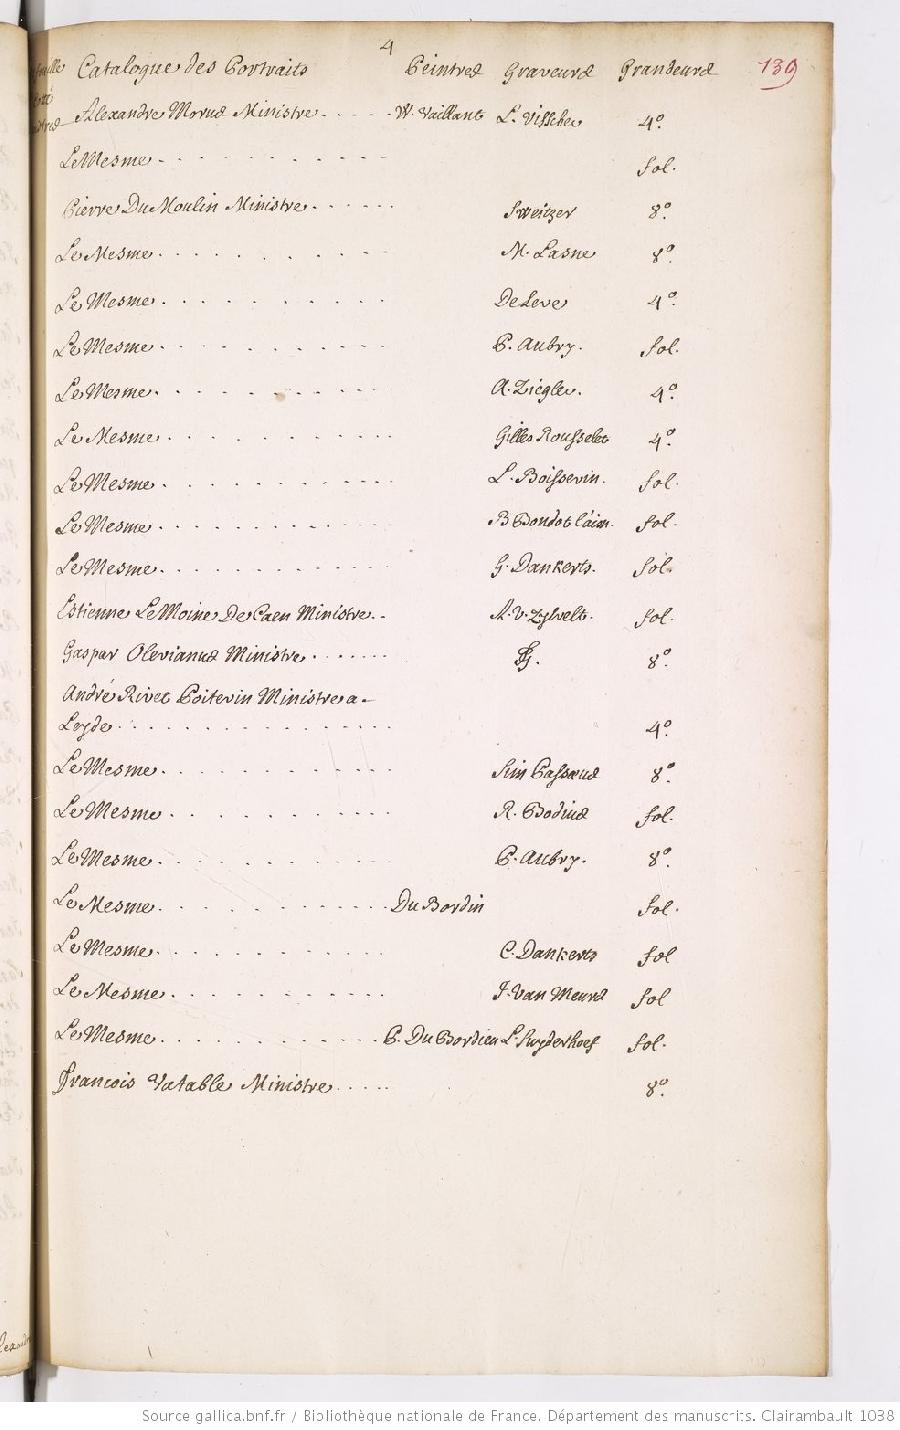 4
Catalogue des Portraits Peintres Graveurs Grandeurs 139
Alexandre Morus Ministre W. Vaillant L. Visscher 4º.
Le Mesme fol.
Pierre Du Moulin Ministre Sweitzer 8º.
Le Mesme M. Lasne 8º.
Le Mesme De Leve 4º.
Le Mesme P. Aubry. fol.
Le Mesme A. Ziegler. 4º.
Le Mesme Gilles Rousselet 4º.
Le Mesme L. Boissevin. fol.
Le Mesme fol.
Le Mesme G. Dankerts. fol.
Estienne Le Moine De Caen Ministre A. V. Zylvelt. fol.
Gaspar Olevianus Ministre 8º.
André Rivet Poitevin Ministre a
Leyde 4º.
Le Mesme Sim Passæus 8º.
Le Mesme R. Bodius fol.
Le Mesme P. Aubry. 8º.
Le Mesme Du Bordin fol.
Le Mesme C. Dankerts fol
Le Mesme J. Van Meurs fol
Le Mesme P. Du Bordieu L. Suyderhoef fol.
francois Vatable Ministre 8º.
Source gallica.bnf.fr / Bibliothèque nationale de France. Département des manuscrits. Clairambault 1038